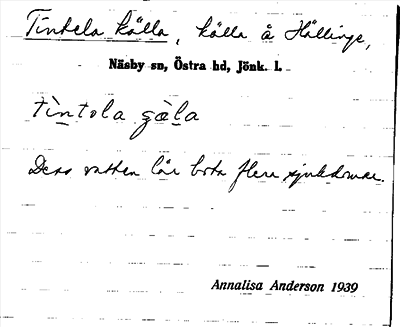 Tintela källa, källa å Hällinge,
Näsby sn, Östra hd, Jönk. l.
tìntola gàla
Dess vatten lär bota flera sjukdomar.
Annalisa Anderson 1939